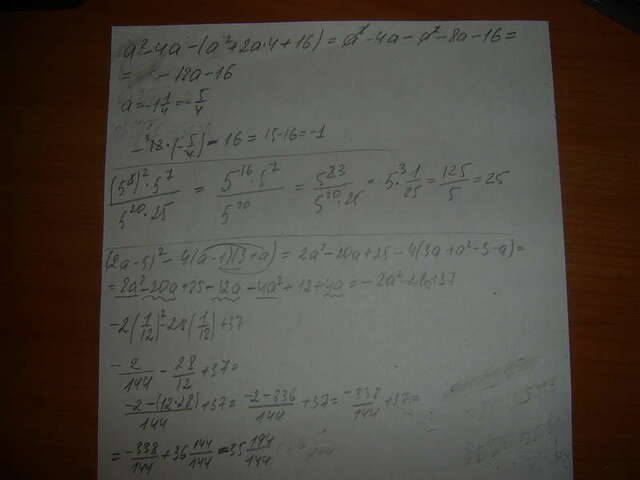 a²-4a-(a²+2a·4+16)=a²-4a-a²-8a-16=
= -12a-16
a=-1 1/4=-5/4
-12·(-5/4)-16=15-16=-1
(5⁸)²·5⁷/5²⁰·25 = 5¹⁶·5⁷/5²⁰ = 5²³/5²⁰·25 = 5³·1/25=125/5=25
(2a-5)²-4(a-1)(3+a)=2a²-20a+25-4(3a+a²-3-a)=
=2a²-20a+25-12a-4a²+12+4a=-2a²-28a+37
-2(1/12)²-28(1/12)+37
-2/144-28/12+37=
-2-(12·28)/144+37=-2-336/144+37=-338/144+37=
=-338/144+36 144/144=35 194/144